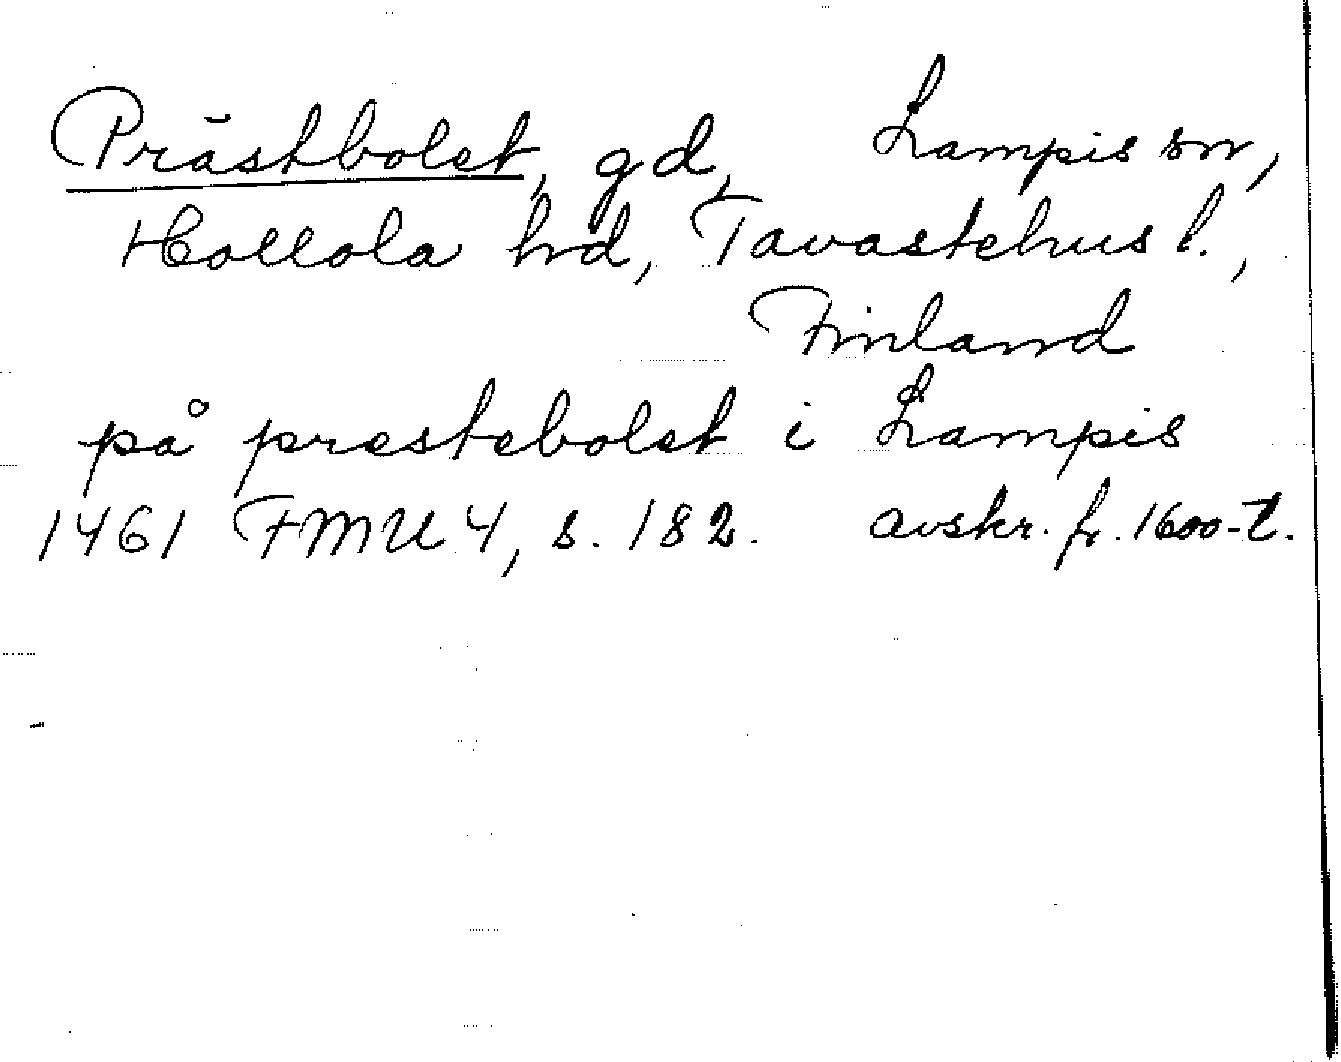 Prästbolet, gd, Lampis sn,
Hollola hd, Tavastehus l.,
Finland
på prestebolet i Lampis
1461 FMU 4, s. 182. avskr. fr. 1600-t.